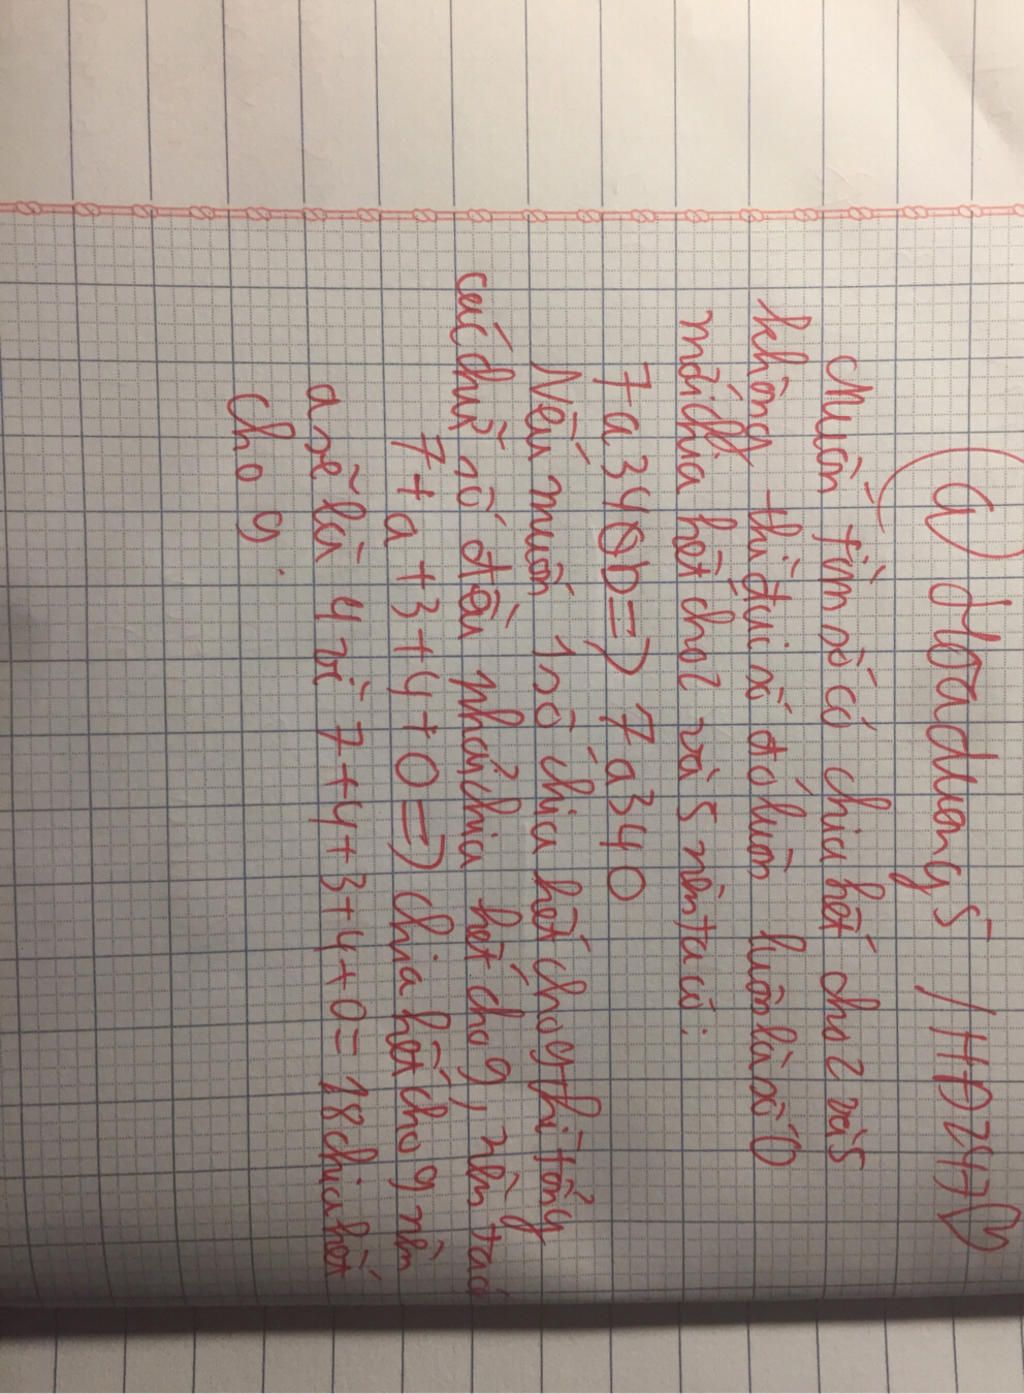 @ Hoaduong5 /HĐ247♡
Muốn tìm số có chia hết cho 2 và 5
không thì đuôi số đó luôn luôn là số 0
mới chia hết cho 2 và 5 nên ta có:
7a340b => 7a340
Nếu muốn 1 số chia hết cho 9 thì tổng
các chữ số đến phải chia hết cho 9, nên ta có
7+a+3+4+0 => chia hết cho 9 nên
a sẽ là 4 vì 7+4+3+4+0=18 chia hết
cho 9.